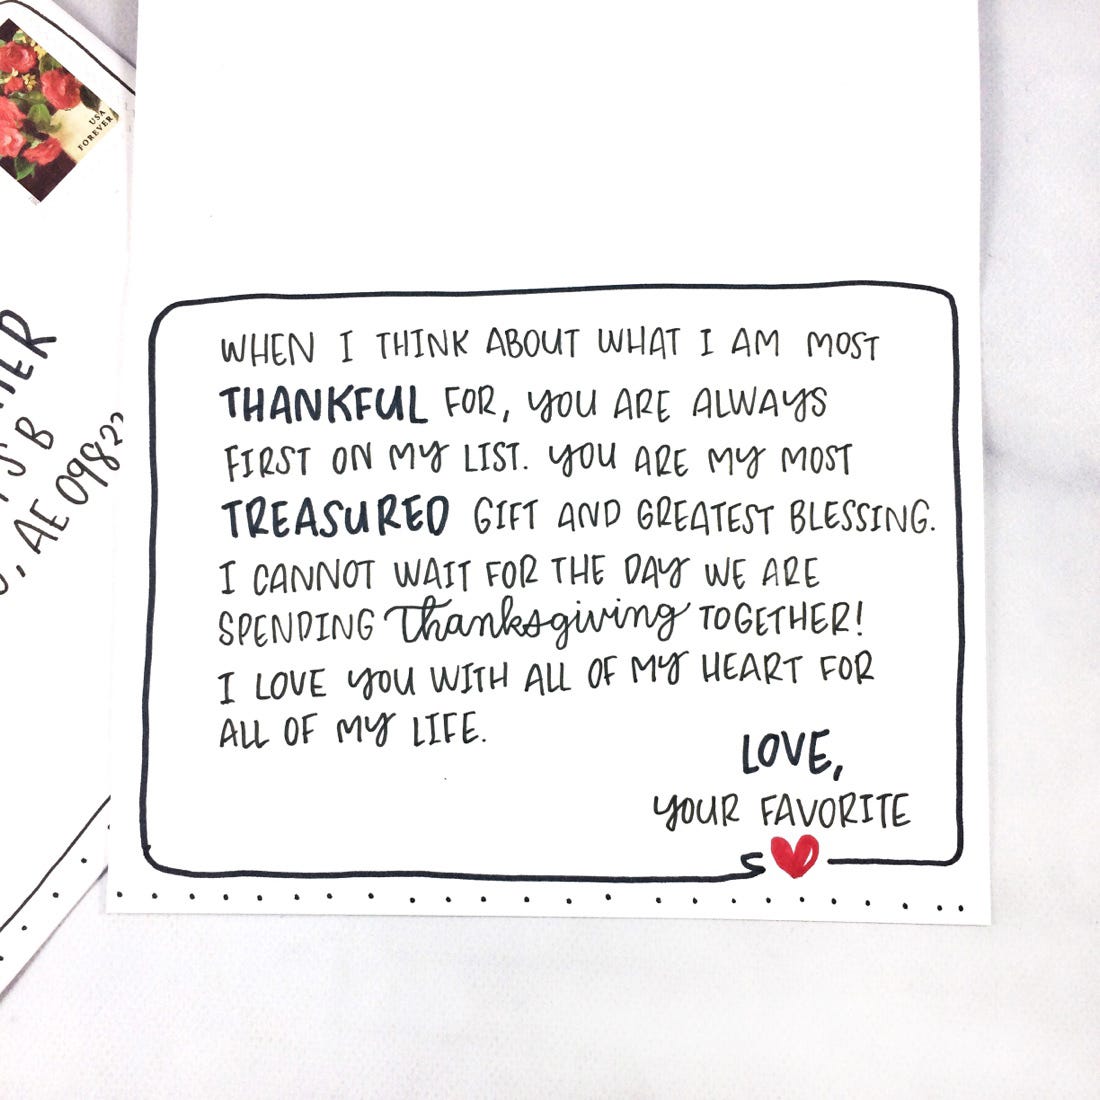 USA
FOREVER
S B
, AE 098
WHEN I THINK ABOUT WHAT I AM MOST
THANKFUL FOR, YOU ARE ALWAYS
FIRST ON MY LIST. YOU ARE MY MOST
TREASURED GIFT AND GREATEST BLESSING.
I CANNOT WAIT FOR THE DAY WE ARE
SPENDING Thanksgiving TOGETHER!
I LOVE YOU WITH ALL OF MY HEART FOR
ALL OF MY LIFE.
LOVE,
YOUR FAVORITE